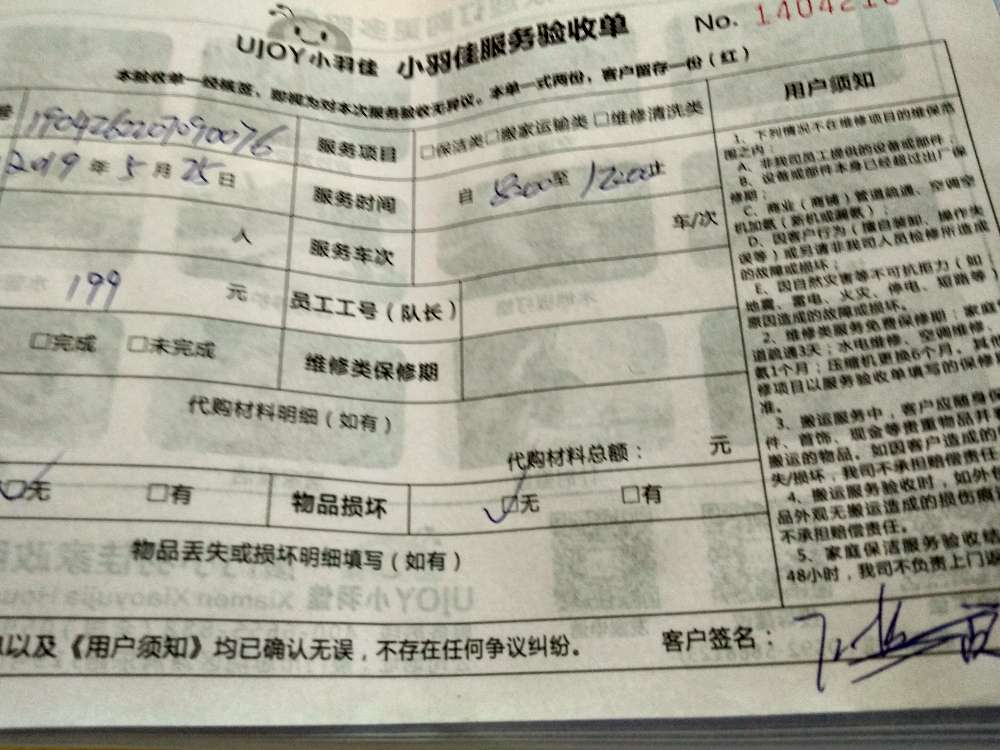 UJOY小羽佳 小羽佳服务验收单 No. 1404210
本验收单一经核签，即视为对本次服务验收无异议。本单一式两份，客户留存一份（红）
1904262207090076 服务项目 □保洁类□搬家运输类□维修清洗类
2019 年 5 月 25 日 服务时间 自 8:00 至 12:00 止
人 服务车次 车/次
199 元 员工工号（队长）
□完成 □未完成 维修类保修期
代购材料明细（如有）
代购材料总额： 元
□无 □有 物品损坏 □无 □有
物品丢失或损坏明细填写（如有）
以及《用户须知》均已确认无误，不存在任何争议纠纷。 客户签名：
用户须知
1、下列情况不在维修项目的维保范
围之内：
A、非我司员工提供的设备或部件；
B、设备或部件本身已经超过出厂保
修期；
C、商业（商铺）管道疏通、空调空
机加氨（新机或漏氨）；
D、因客户行为（擅自装卸、操作失
误等）或另请非我司人员检修所造成
的故障或损坏；
E、因自然灾害等不可抗拒力（如：
地震、雷电、火灾、停电、短路等）
原因造成的故障或损坏。
2、维修类服务免费保修期：家庭
道疏通3天；水电维修、空调维修、
氨1个月；压缩机更换6个月。其他
修项目以服务验收单填写的保修
准。
3、搬运服务中，客户应随身保
件、首饰、现金等贵重物品并
搬运的物品。如因客户造成的
失/损坏，我司不承担赔偿责任
4、搬运服务验收时，如外包
品外观无搬运造成的损伤痕
不承担赔偿责任。
5、家庭保洁服务验收结
48小时，我司不负责上门返